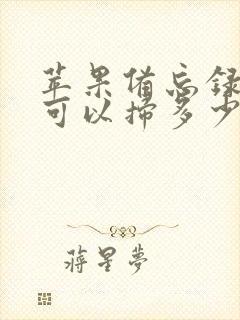 苹果备忘録
可以掃多少
蒋星夢